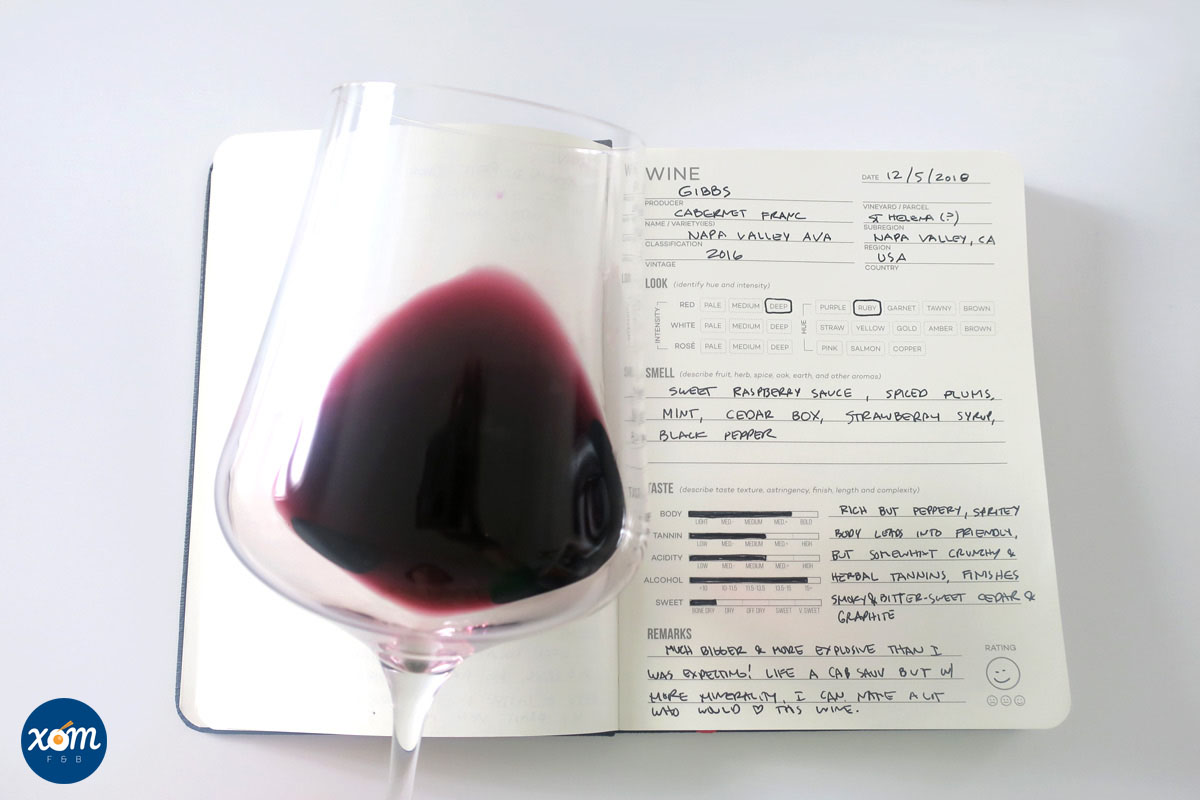 WINE
DATE 12/5/2018
GIBBS
PRODUCER
VINEYARD / PARCEL
CABERNET FRANC
ST HELENA (?)
NAME / VARIETY(IES)
SUBREGION
NAPA VALLEY AVA
NAPA VALLEY, CA
CLASSIFICATION
REGION
2016
USA
VINTAGE
COUNTRY
LOOK (identify hue and intensity)
INTENSITY
RED PALE MEDIUM DEEP
WHITE PALE MEDIUM DEEP
ROSÉ PALE MEDIUM DEEP
HUE
PURPLE RUBY GARNET TAWNY BROWN
STRAW YELLOW GOLD AMBER BROWN
PINK SALMON COPPER
SMELL (describe fruit, herb, spice, oak, earth, and other aromas)
SWEET RASPBERRY SAUCE, SPICED PLUMS,
MINT, CEDAR BOX, STRAWBERRY SYRUP,
BLACK PEPPER
TASTE (describe taste texture, astringency, finish, length and complexity)
BODY
LIGHT MED- MEDIUM MED+ BOLD
TANNIN
LOW MED- MEDIUM MED+ HIGH
ACIDITY
LOW MED- MEDIUM MED+ HIGH
ALCOHOL
<10 10-11.5 11.5-13.5 13.5-15 15+
SWEET
BONE DRY DRY OFF DRY SWEET V.SWEET
RICH BUT PEPPERY,
BODY LEADS INTO FRIENDLY,
BUT SOMEWHAT CRUNCHY &
HERBAL TANNINS, FINISHES
SMOKY & BITTER-SWEET CEDAR &
GRAPHITE
REMARKS
MUCH BIGGER & MORE EXPLOSIVE THAN I
WAS EXPECTING! LIKE A CAB SAUV BUT W/
MORE MINERALITY, I CAN NAME A LOT
WHO WOULD ♡ THIS WINE.
RATING
xóm
F & B